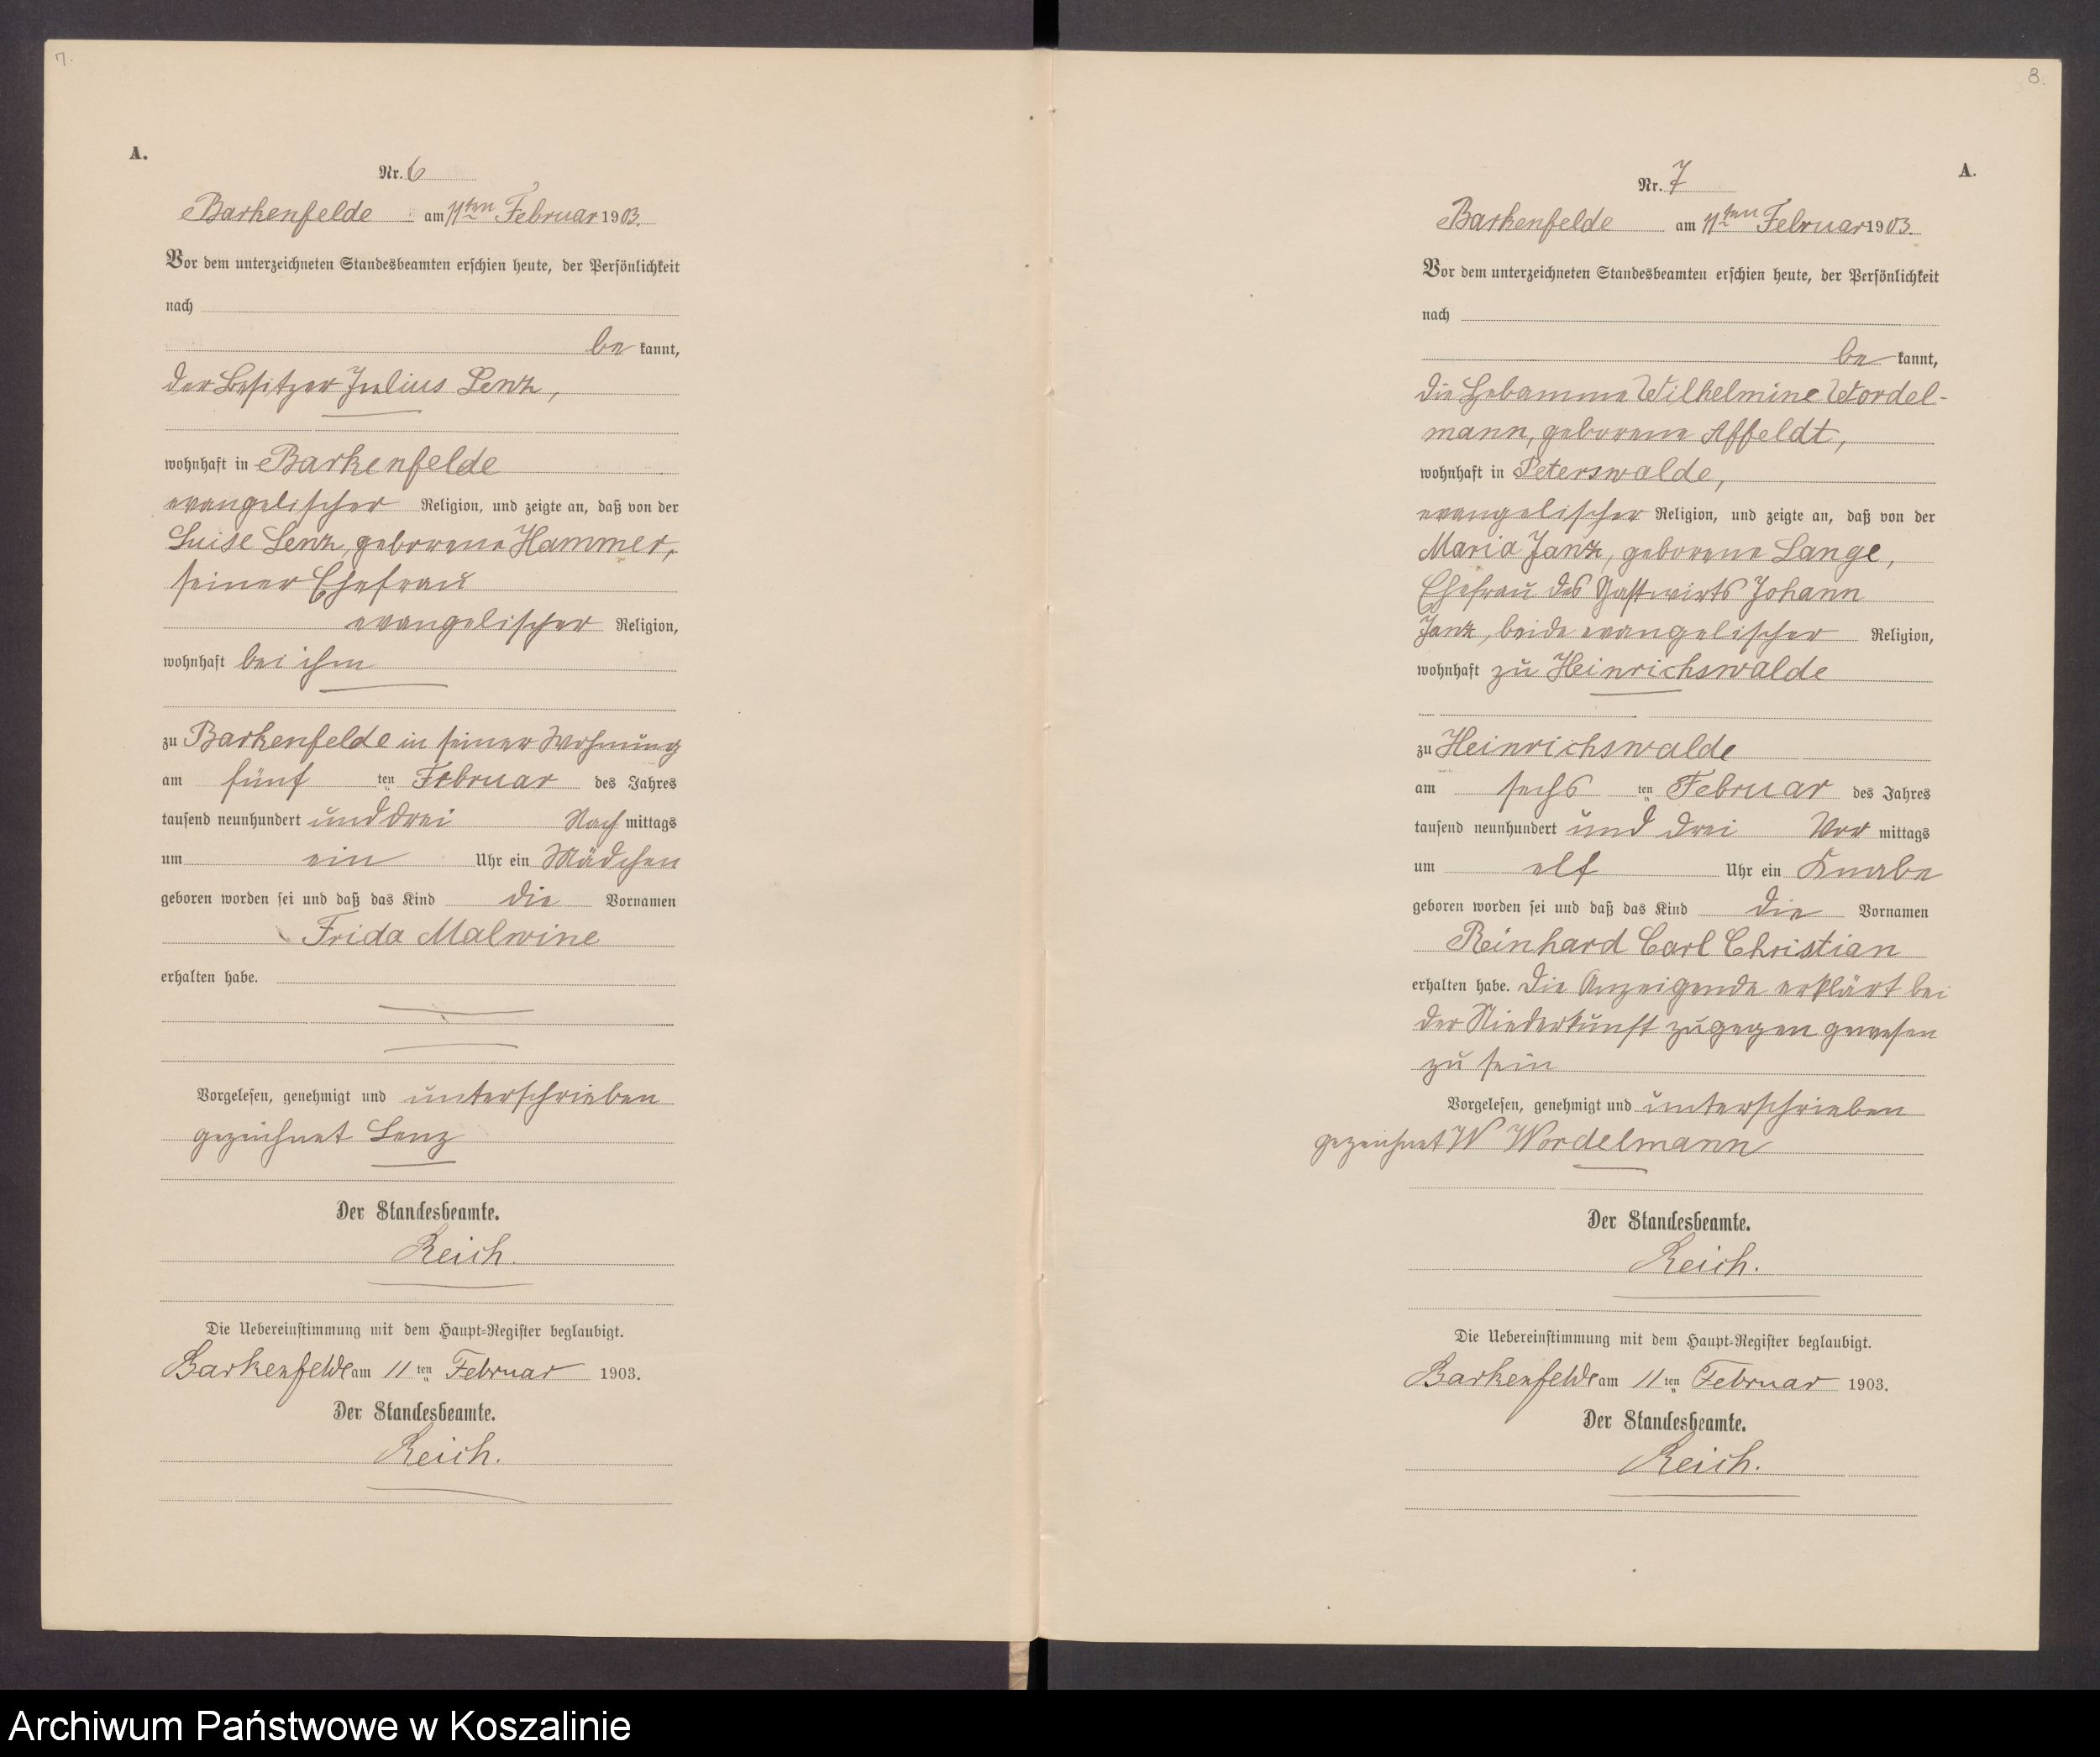 7.
A.
Nr. 6
Barkenfelde am 11ten Februar 1903.
Vor dem unterzeichneten Standesbeamten erschien heute, der Persönlichkeit
nach
be kannt,
der Besitzer Julius Lenz,
wohnhaft in Barkenfelde
evangelischer Religion, und zeigte an, daß von der
Luise Lenz, geborene Hammer,
seiner Ehefrau
evangelischer Religion,
wohnhaft bei ihm
zu Barkenfelde in seiner Wohnung
am fünf ten Februar des Jahres
tausend neunhundert und drei Nach mittags
um ein Uhr ein Mädchen
geboren worden sei und daß das Kind die Vornamen
Frida Malwine
erhalten habe.
Vorgelesen, genehmigt und unterschrieben
gezeichnet Lenz
Der Standesbeamte.
Reich.
Die Uebereinstimmung mit dem Haupt-Register beglaubigt.
Barkenfelde am 11 ten Februar 1903.
Der Standesbeamte.
Reich.
8.
A.
Nr. 7
Barkenfelde am 11ten Februar 1903.
Vor dem unterzeichneten Standesbeamten erschien heute, der Persönlichkeit
nach
be kannt,
die Hebamme Wilhelmine Wordel-
mann, geborene Affeldt,
wohnhaft in Peterswalde,
evangelischer Religion, und zeigte an, daß von der
Maria Janz, geborene Lange,
Ehefrau des Gastwirts Johann
Janz, beide evangelischer Religion,
wohnhaft zu Heinrichswalde
zu Heinrichswalde
am sechs ten Februar des Jahres
tausend neunhundert und drei Vor mittags
um elf Uhr ein Knabe
geboren worden sei und daß das Kind die Vornamen
Reinhard Carl Christian
erhalten habe. Die Anzeigende erklärt bei
der Niederkunft zugegen gewesen
zu sein
Vorgelesen, genehmigt und unterschrieben
gezeichnet W Wordelmann
Der Standesbeamte.
Reich.
Die Uebereinstimmung mit dem Haupt-Register beglaubigt.
Barkenfelde am 11 ten Februar 1903.
Der Standesbeamte.
Reich.
Archiwum Państwowe w Koszalinie